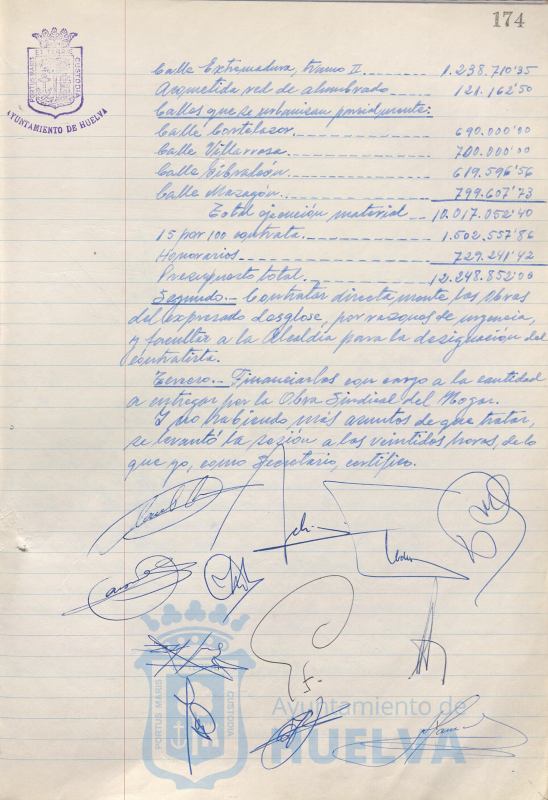 174
PORTUS MARIS ET TERRAE CUSTODIA
AYUNTAMIENTO DE HUELVA
Calle Extremadura, tramo II. 1.238.710'35
Arquetida red de alumbrado 121.162'50
Calles que se urbanizan parcialmente:
Calle Cortelazor. 690.000'00
Calle Villarrasa. 700.000'00
Calle Gibraleón. 619.596'56
Calle Mazagón. 799.607'73
Total ejecución material 10.017.052'40
15 por 100 contrata. 1.502.557'86
Honorarios. 729.241'42
Presupuesto total. 12.248.852'00
Segundo.- Contratar directamente las obras
del expresado desglose, por razones de urgencia,
y facultar a la Alcaldía para la designación del
contratista.
Tercero.- Financiarlas con cargo a la cantidad
a entregar por la Obra Sindical del Hogar.
Y no habiendo más asuntos de que tratar,
se levantó la sesión a las veintidos horas, de lo
que yo, como Secretario, certifico.
PORTUS MARIS CUSTODIA
Ayuntamiento de
HUELVA